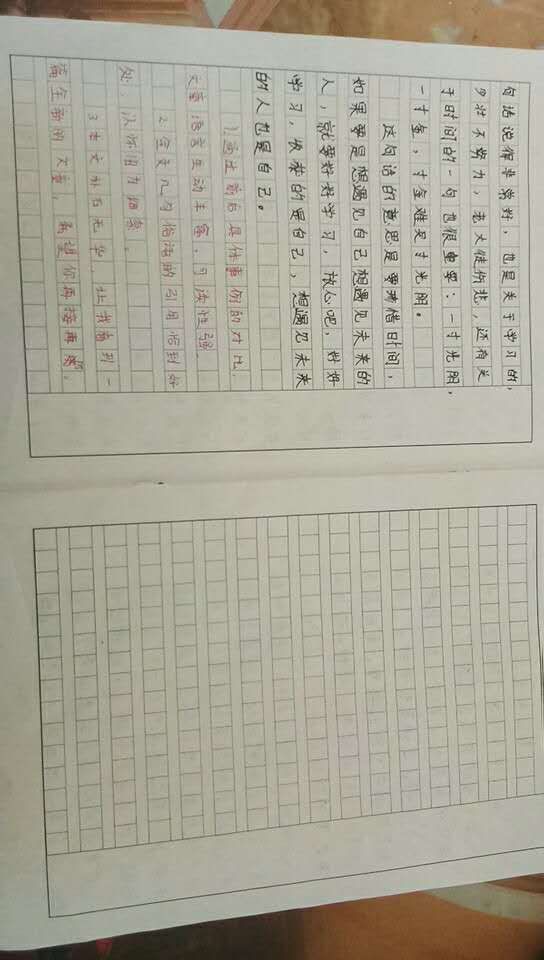 句话说得非常好，也是关于学习的，
少壮不努力，老大徒伤悲，还有关
于时间的一句也很重要：一寸光阴，
一寸金，寸金难买寸光阴。
这句话的意思是要珍惜时间，
如果要是想遇见自己想遇见未来的
人，就要好好学习，放心吧，好好
学习，收获的是自己，想遇见未来
的人也是自己。
1.通过前后具体事例的对比，
文章语言生动丰富，可读性强。
2.全文几句俗语的引用恰到好
处，
3.本文朴石无华，让我看到一
篇全新的文章，希望你再接再厉。